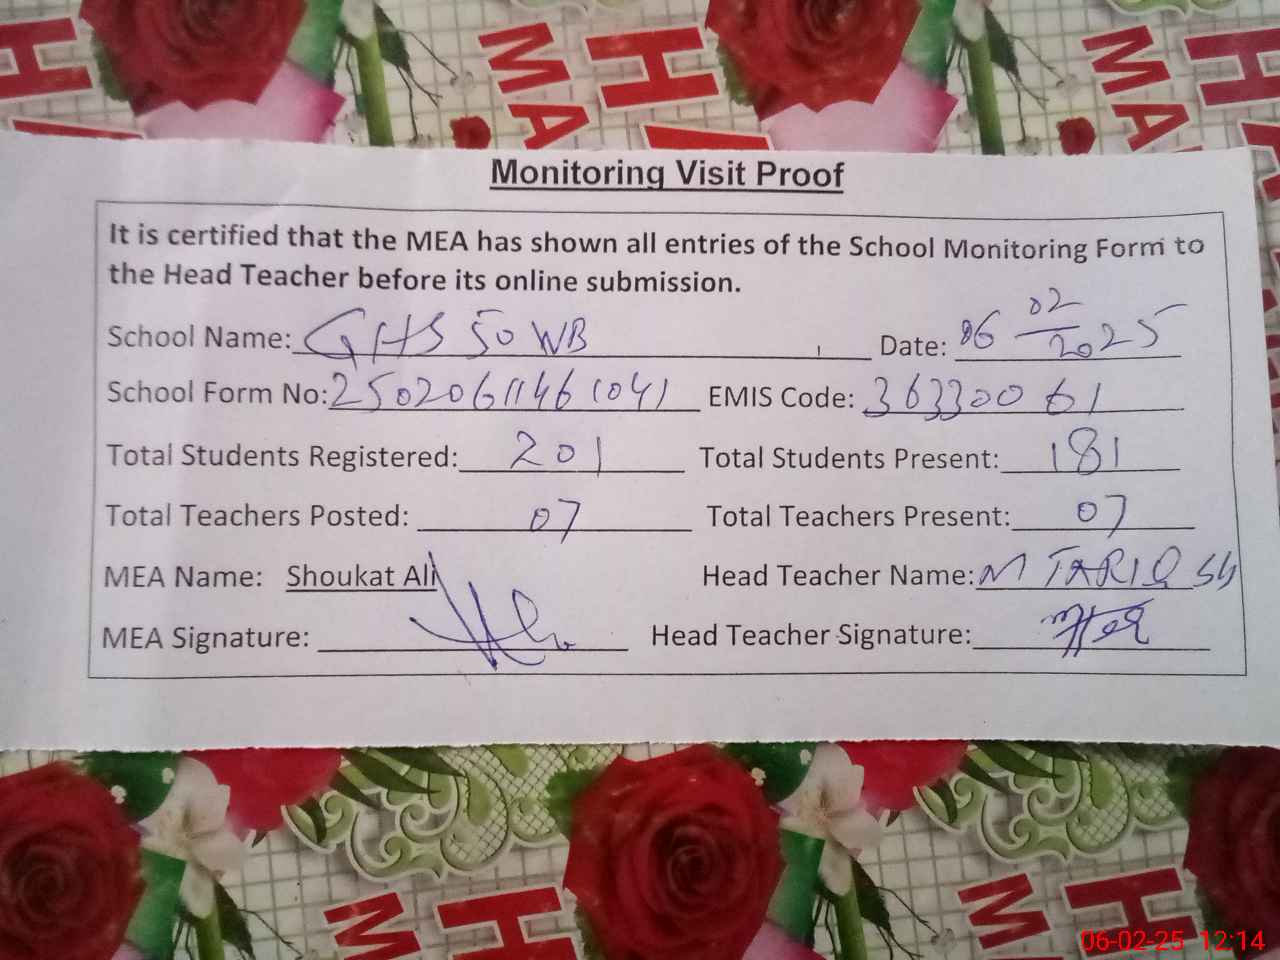 H
MA
H
MA
H
Monitoring Visit Proof
It is certified that the MEA has shown all entries of the School Monitoring Form to
the Head Teacher before its online submission.
School Name: GHS 50 WB Date: 06 02 2025
School Form No: 25020611461041 EMIS Code: 36330061
Total Students Registered: 201 Total Students Present: 181
Total Teachers Posted: 07 Total Teachers Present: 07
MEA Name: Shoukat Ali Head Teacher Name: M TARIQ
MEA Signature: Head Teacher Signature:
MA
H
MA
H
06-02-25 12:14